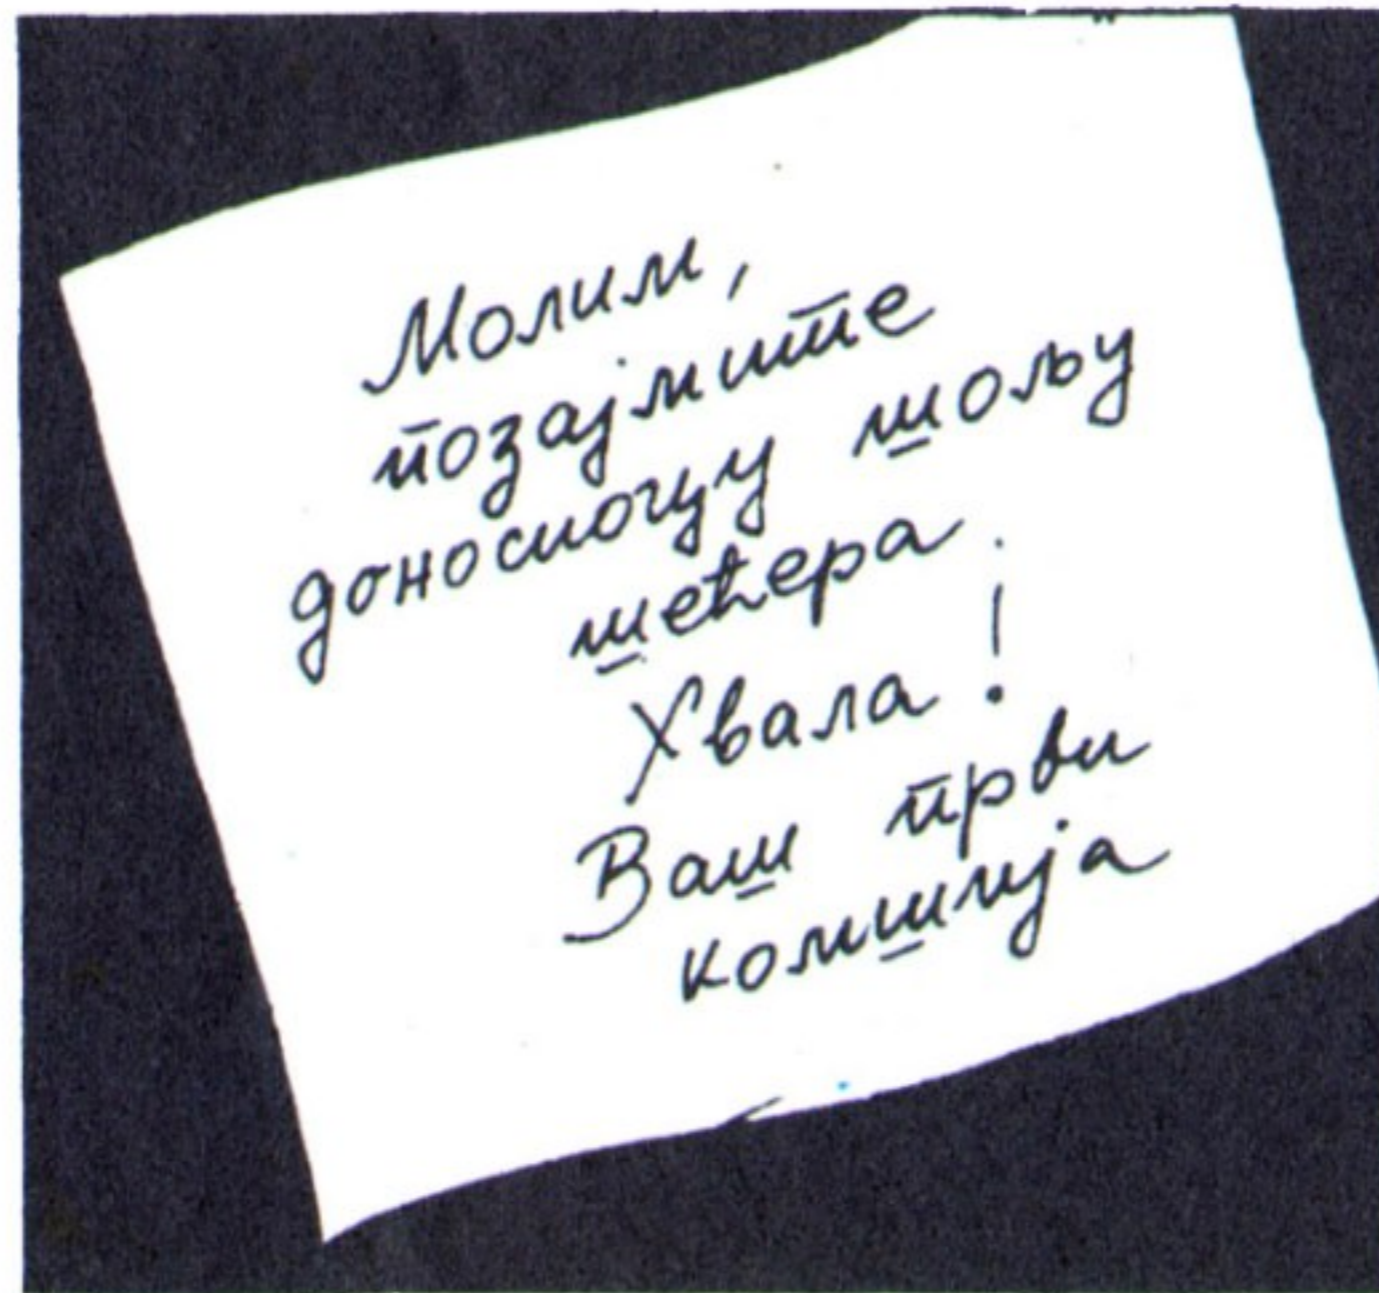 Молим,
позајмите
доносиоцу шољу
шећера.
Хвала!
Ваш први
комшија